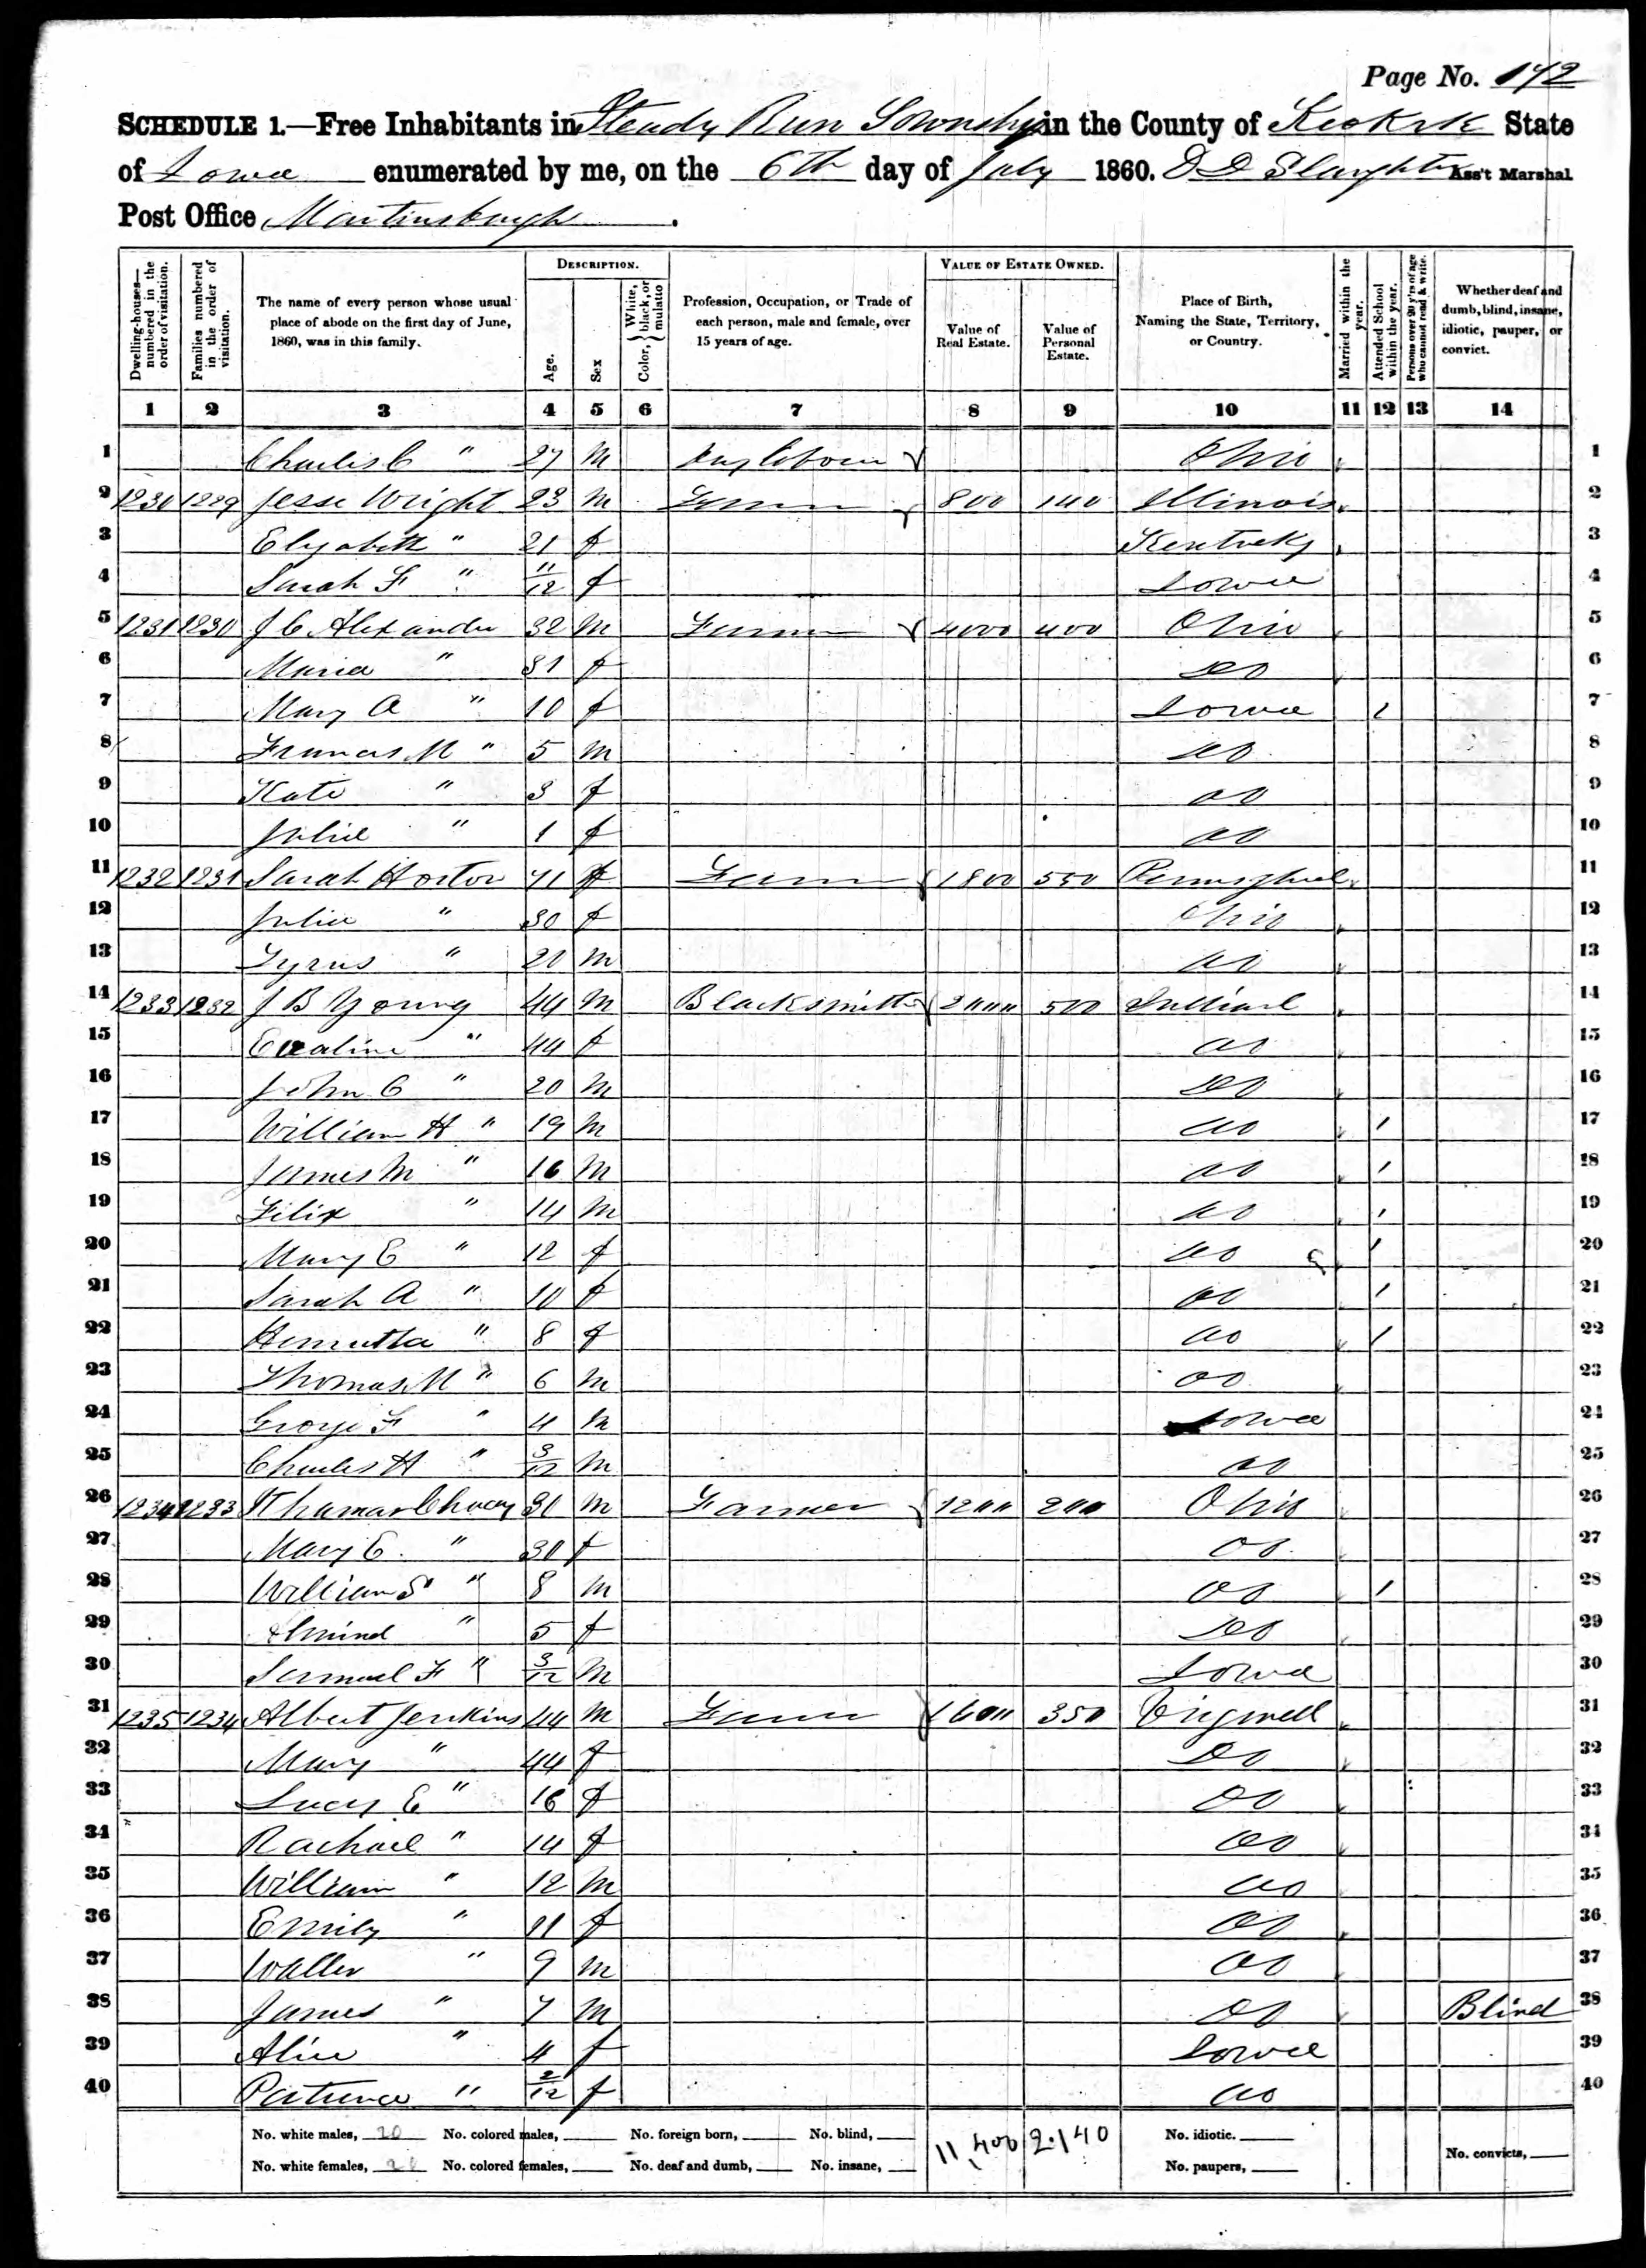 Page No. 142
SCHEDULE 1.—Free Inhabitants in Steady Run Township in the County of Keokuk State
of Iowa enumerated by me, on the 6th day of July 1860. D D Slaughter Ass't Marshal
Post Office Martinsburgh.
Dwelling-houses—numbered in the order of visitation.
Families numbered in the order of visitation.
The name of every person whose usual place of abode on the first day of June, 1860, was in this family.
DESCRIPTION.
Age.
Sex
Color, { White, black, or mulatto
Profession, Occupation, or Trade of each person, male and female, over 15 years of age.
VALUE OF ESTATE OWNED.
Value of Real Estate.
Value of Personal Estate.
Place of Birth, Naming the State, Territory, or Country.
Married within the year.
Attended School within the year.
Persons over 20 y'rs of age who cannot read & write.
Whether deaf and dumb, blind, insane, idiotic, pauper, or convict.
1 2 3 4 5 6 7 8 9 10 11 12 13 14
1 Charles C " 27 M Ohio 1
2 1230 1229 Jesse Wright 23 M Farmer 800 140 Illinois 2
3 Elizabeth " 21 f Kentucky 3
4 Sarah F " 11/12 f Iowa 4
5 1231 1230 J C Alexander 32 M Farmer 4000 400 Ohio 5
6 Maria " 31 f do 6
7 Mary A " 10 f Iowa 1 7
8 Francis M " 5 M do 8
9 Kate " 3 f do 9
10 Julia " 1 f do 10
11 1232 1231 Sarah Horton 41 f Farmer 1800 550 Pennsylvania 11
12 Julia " 30 f Ohio 12
13 " 20 M do 13
14 1233 1232 J B Young 44 M Blacksmith 2000 500 Indiana 14
15 Evaline " 44 f do 15
16 John C " 20 M do 16
17 William H " 19 M do / 17
18 James M " 16 M do / 18
19 Felix " 14 M do / 19
20 Mary E " 12 f do / 20
21 Sarah A " 10 f do / 21
22 Henrietta " 8 f do / 22
23 Thomas M " 6 M do 23
24 George F " 4 M Iowa 24
25 Charles H " 3/12 M do 25
26 1234 1233 30 M Farmer 1200 200 Ohio 26
27 Mary E. " 30 f do 27
28 William S " 8 M do / 28
29 " 5 f do 29
30 Samuel F " 3/12 M Iowa 30
31 1235 1234 Albert Jenkins 44 M Farmer 1600 350 31
32 Mary " 44 f do 32
33 Lucy E " 16 f do 33
34 Rachael " 14 f do 34
35 William " 12 M do 35
36 Emily " 11 f do 36
37 Walter " 9 M do 37
38 James " 7 M do Blind 38
39 Alice " 4 f Iowa 39
40 Patience " 2/12 f do 40
No. white males, 20 No. colored males, No. foreign born, No. blind, 11,400 2.140 No. idiotic.
No. white females, 20 No. colored females, No. deaf and dumb, No. insane, No. paupers, No. convicts,